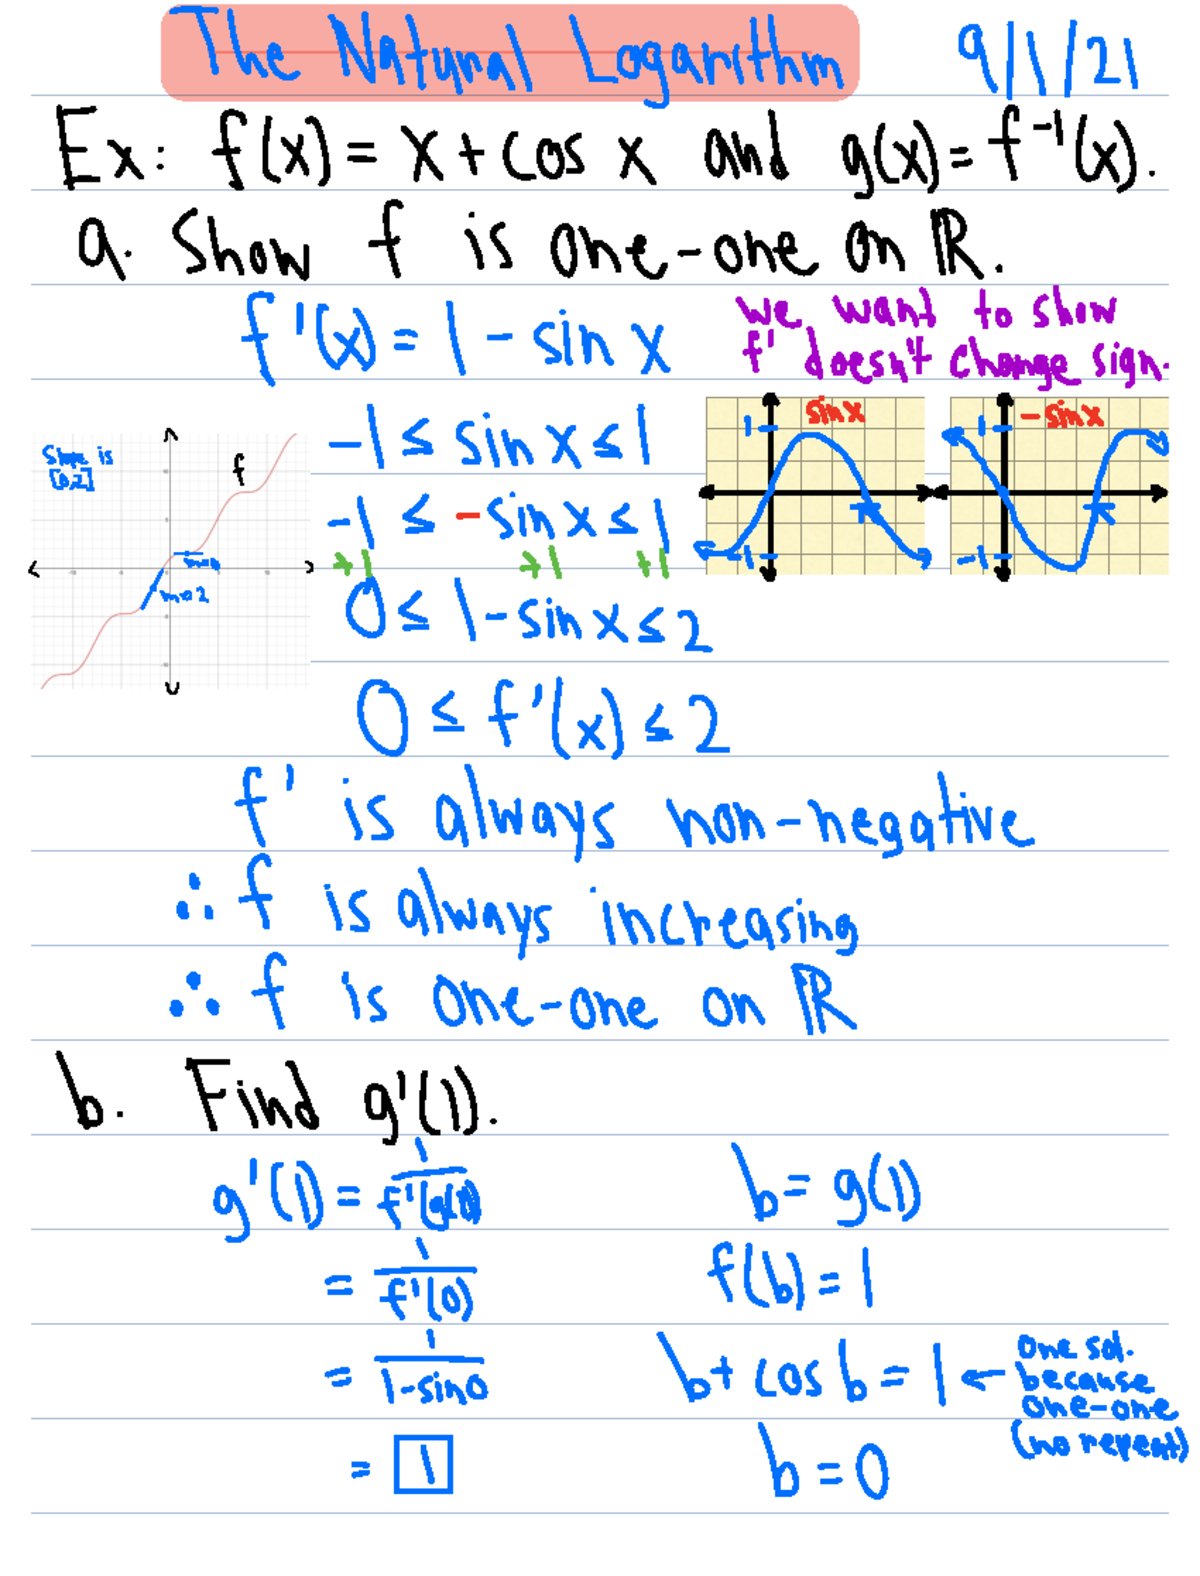 The Natural Logarithm 9/1/21
Ex: f(x) = x + cos x and g(x) = f⁻¹(x).
a. Show f is one-one on ℝ.
f'(x) = 1 - sin x
we want to show
f' doesn't change sign.
Slope is
[0,2]
f
m=0
m=2
-1 ≤ sin x ≤ 1
-1 ≤ -sin x ≤ 1
+1 +1 +1
0 ≤ 1 - sin x ≤ 2
sin x
1
π
-1
-sin x
1
π
-1
0 ≤ f'(x) ≤ 2
f' is always non-negative
∴ f is always increasing
∴ f is one-one on ℝ
b. Find g'(1).
g'(1) = 1/f'(g(1))
= 1/f'(0)
= 1/1-sin0
= 1
b = g(1)
f(b) = 1
b + cos b = 1 ← one sol.
because
one-one
(no repeat)
b = 0